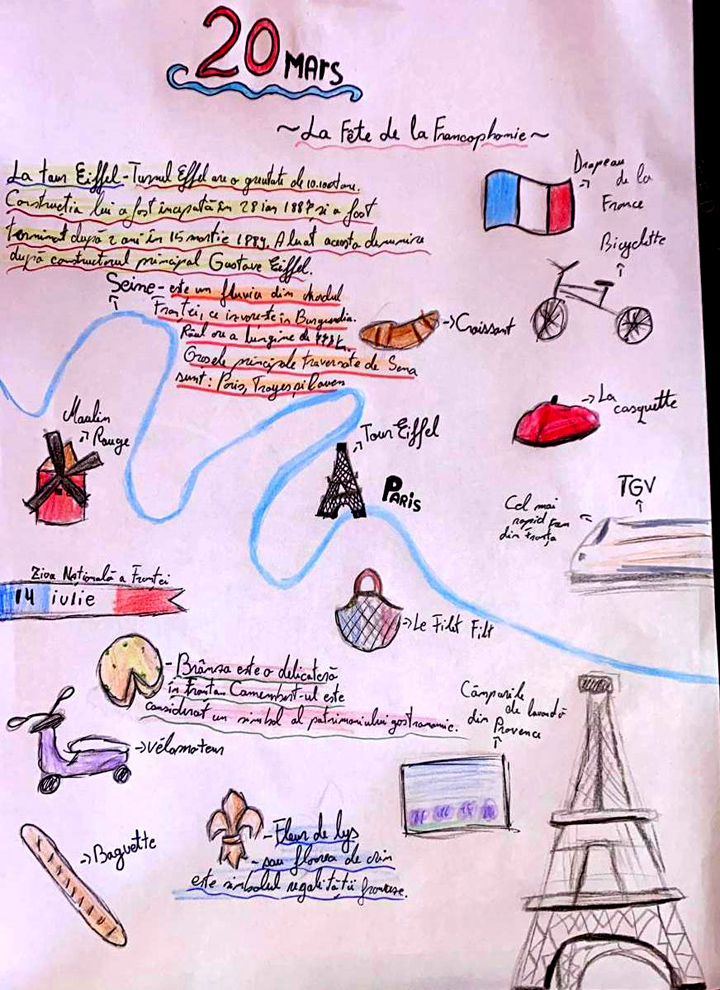 20 MARS
~La Fête de la Francophonie~
La tour Eiffel-Turnul Eiffel are o greutate de 10.100 tone.
Construcția lui a fost începută în 28 ian 1887 și a fost
terminat după 2 ani în 15 martie 1889. A luat acesta denumire
după constructorul principal Gustave Eiffel.
Drapeau
de la
France
Bicyclette
Seine- este un fluviu din nordul
Franței, ce izvorește în Burgundia.
Râul are o lungime de
Orașele principale traversate de Sena
sunt: Paris, Troyes și Rouen
Croissant
La
casquette
Moulin
Rouge
Tour Eiffel
PARIS
TGV
Cel mai
rapid tren
din Franța
Ziua Națională a Franței
14 iulie
Le Filet Filt
-Brânza este o delicatesă
în Franța. Camembert-ul este
considerat un simbol al patrimoniului gastronomic.
Câmpurile
de lavandă
din Provence
vélomoteur
Baguette
-Fleur de lys
- sau floarea de crin
este simbolul regalității franceze.